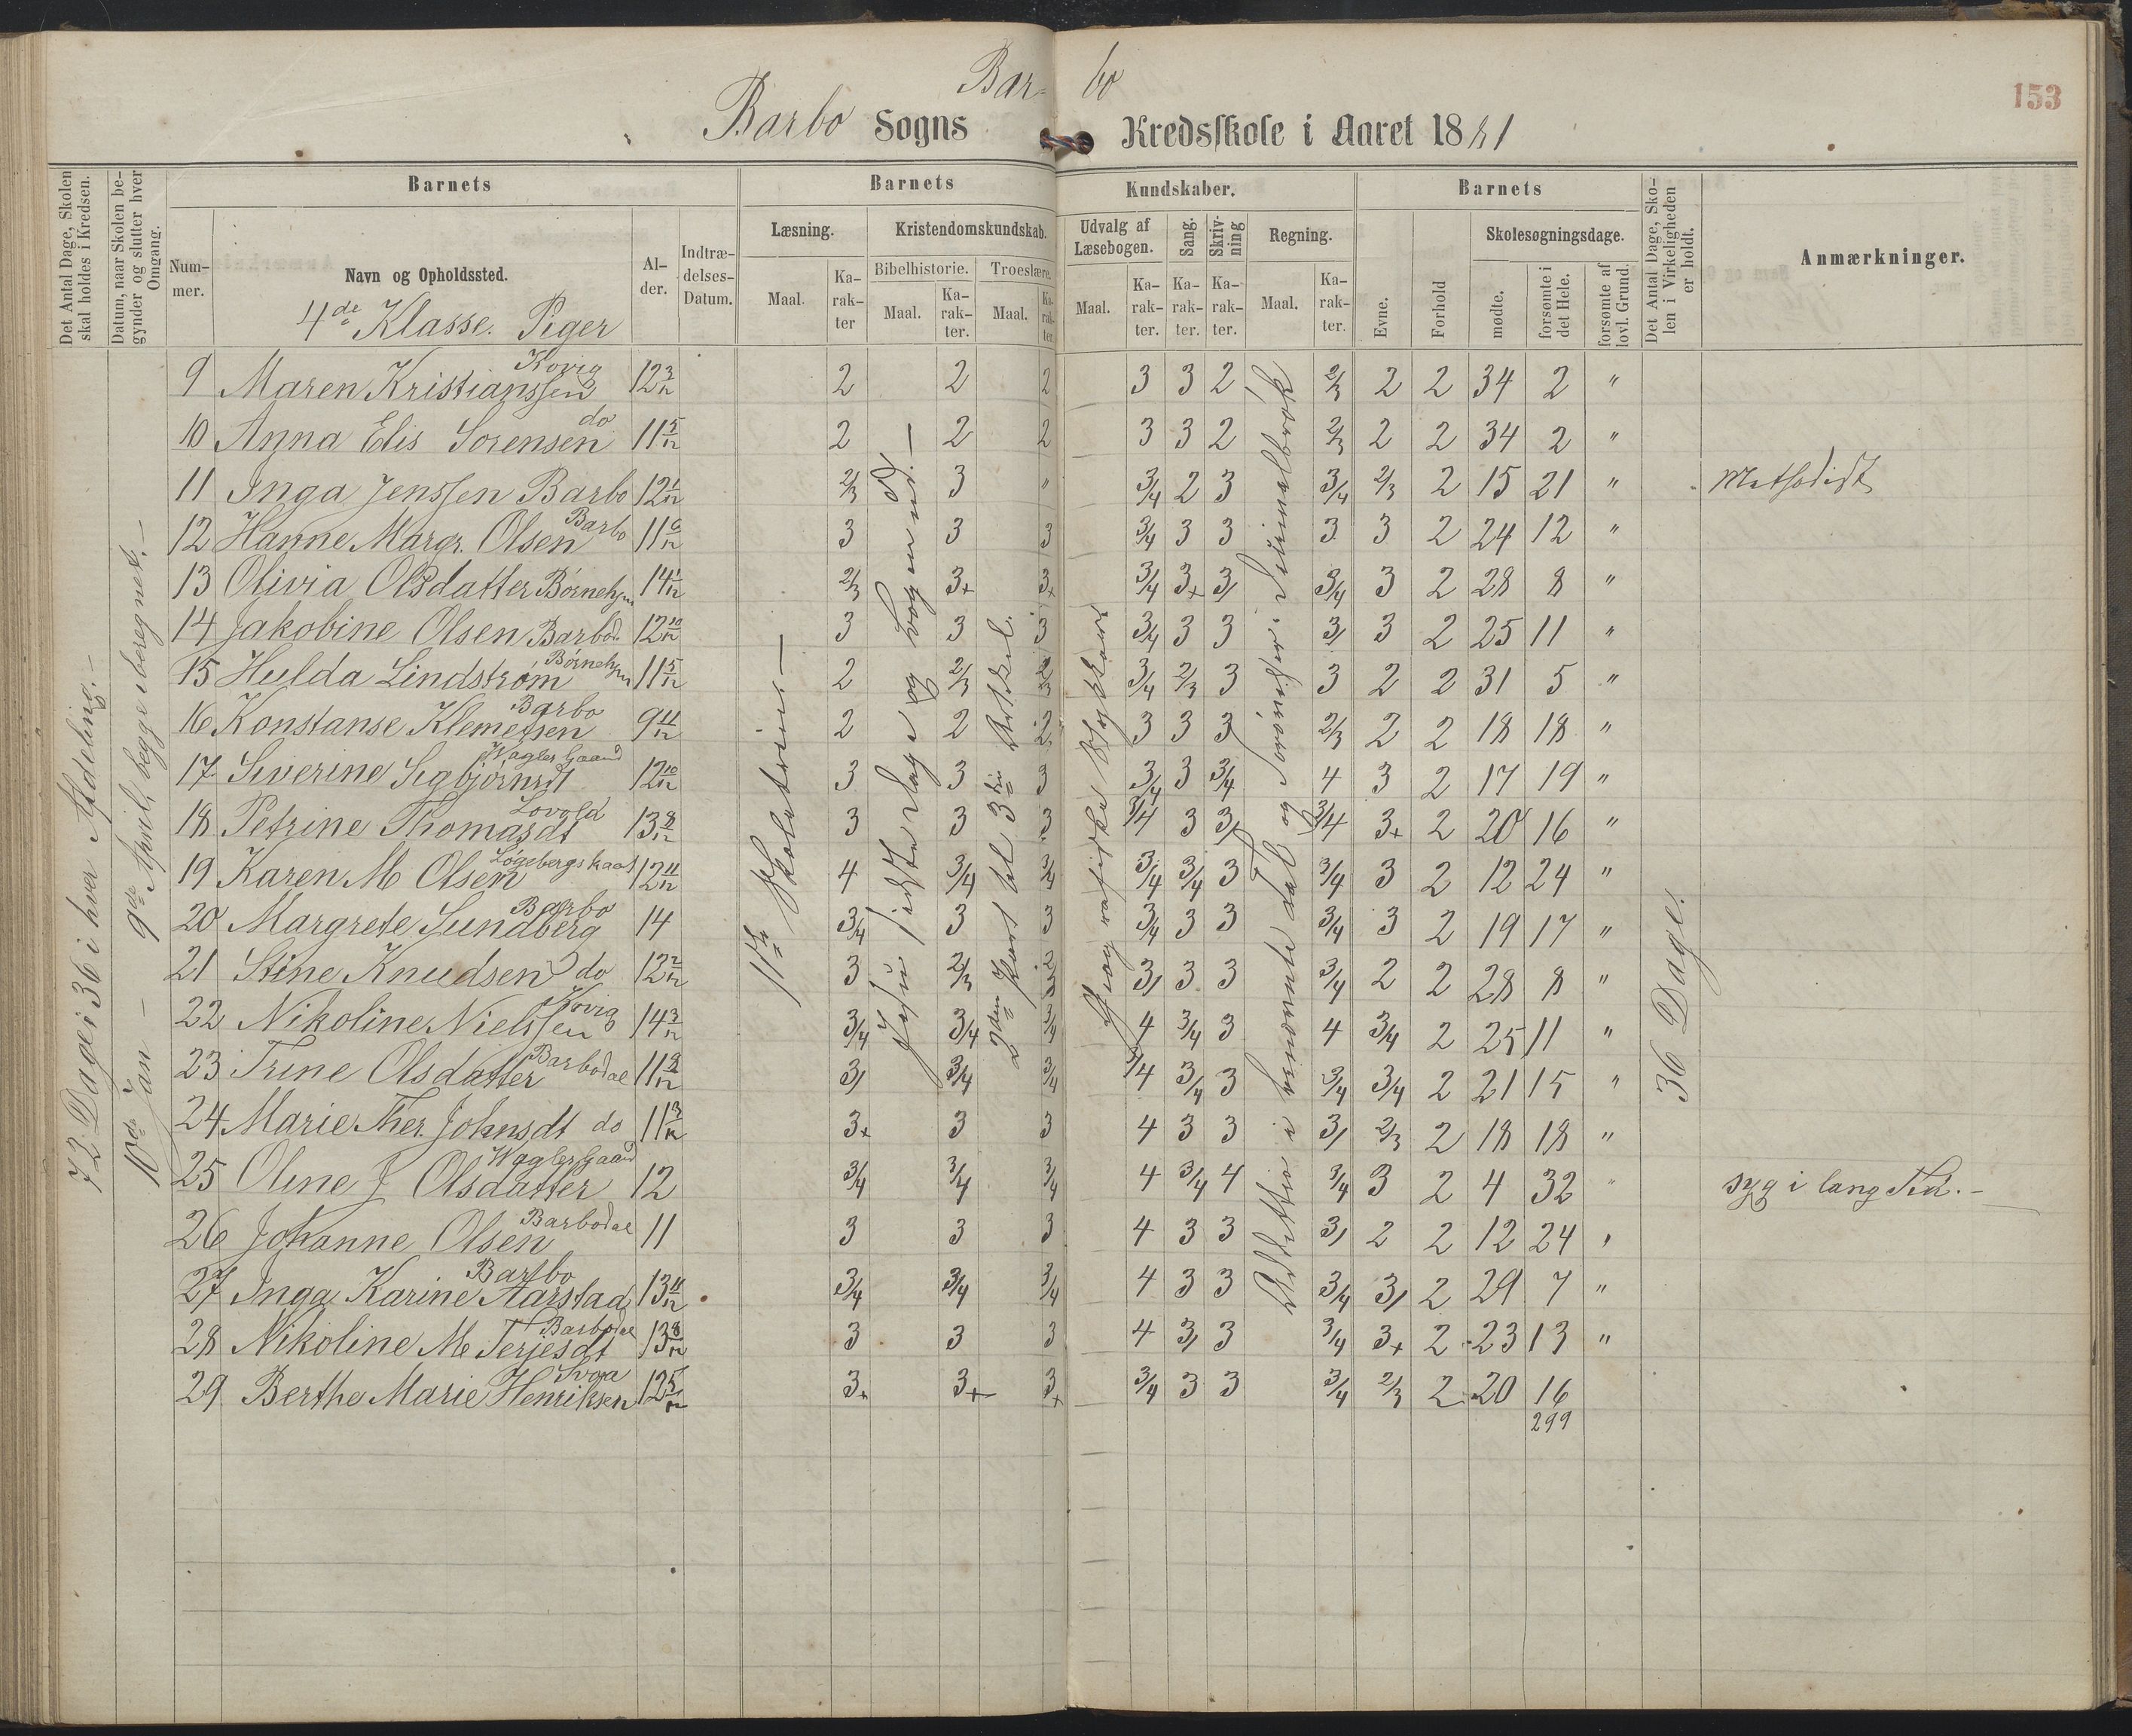 Bar- bo
153
Barbo Sogns Kredsskole i Aaret 1881
Det Antal Dage, Skolen skal holdes i Kredsen.
Datum, naar Skolen begynder og slutter hver Omgang.
Barnets
Nummer.
Navn og Opholdssted.
4de Klasse. Piger
Alder.
Indtrædelses-Datum.
Barnets Kundskaber.
Læsning. Maal. Karakter
Kristendomskundskab.
Bibelhistorie. Maal. Karakter.
Troeslære. Maal. Karakter
Udvalg af Læsebogen. Maal. Karakter.
Sang. Karakter.
Skrivning Karakter.
Regning. Maal. Karakter.
Barnets
Evne. Forhold
Skolesøgningsdage.
mødte. forsømte i det Hele. forsømte af lovl. Grund.
Det Antal Dage, Skolen i Virkeligheden er holdt.
Anmærkninger.
72 Dage i 36 i hver Afdeling.-
10de Jan - 9de April, begge iberegnet.-
11te Skoletrin -
Jesu sidste Dage og Bogen ud. -
2den Part til 3die Artikel.
Geografiske Stykker
36 Dage.
9 Maren Kristianssen Kovig 12 3/12 2 2 2 3 3 2 2/3 2 2 34 2 "
10 Anna Elis Sorensen do 11 5/12 2 2 2 3 3 2 2/3 2 2 34 2 "
11 Inga Jenssen Barbo 12 1/12 2/3 3 " 3/4 2 3 3/4 2/3 2 15 21 " Methodist
12 Hanne Margr. Olsen Barbo 11 6/12 3 3 3 3/4 3 3 3 3 2 24 12 "
13 Olivia Olsdatter Börnehjm 14 1/12 2/3 3+ 3+ 3/4 3+ 3/ 3/4 3 2 28 8 "
14 Jakobine Olsen Barbod. 12 10/12 3 3 3 3/4 3 3 3/ 3 2 25 11 "
15 Hulda Lindström Börnehjm 11 5/12 2 2/3 2/3 3/4 2/3 3 3 2 2 31 5 "
16 Konstanse Klemetsen Barbo 9 11/12 2 2 2 3 3 3 2/3 2 2 18 18 "
17 Siverine Sigbjörnsdt Wagles Gaard 12 10/12 3 3 3 3/4 3 3/4 4 3 2 17 19 "
18 Petrine Thomasdt Lovold 13 8/12 3 3 3 3/4 3 3/ 3/4 3+ 2 20 16 "
19 Karen M Olsen Lögebergskaas 12 11/12 4 3/4 3/4 3/4 3/4 3 3/4 3 2 12 24 "
20 Margrete Sundberg Barbo 14 3/4 3 3 3/4 3 3 3/4 3 2 19 17 "
21 Stine Knudsen do 12 2/12 3 2/3 2/3 3/ 3 3 3/4 2 2 28 8 "
22 Nikoline Nielssen Kovig 14 3/12 3/4 3/4 3/4 4 3/4 3 4 3/4 2 25 11 "
23 Trine Olsdatter Barbodal 11 9/12 3/ 3/4 3/4 3/4 3/4 3 3/4 3/4 2 21 15 "
24 Marie Ther. Johnsdt do 11 3/12 3+ 3 3 4 3 3 3/ 2/3 2 18 18 "
25 Oline J Olsdatter Wagles Gaard 12 3/4 3/4 3/4 4 3/4 4 3/4 3 2 4 32 " syg i lang Tid.-
26 Johanne Olsen Barbodal 11 3 3 3 4 3 3 3/ 2 2 12 24 "
27 Inga Karine Aarstad Barbo 13 11/12 3/4 3/4 3/4 4 3 3 3/4 3/ 2 29 7 "
28 Nikoline M Terjesdt Barbodal 13 8/12 3 3 3 4 3/ 3 3/4 3+ 2 23 13 "
29 Berthe Marie Henriksen 12 5/12 3+ 3+ 3+ 3/4 3 3 3/4 2/3 2 20 16
299